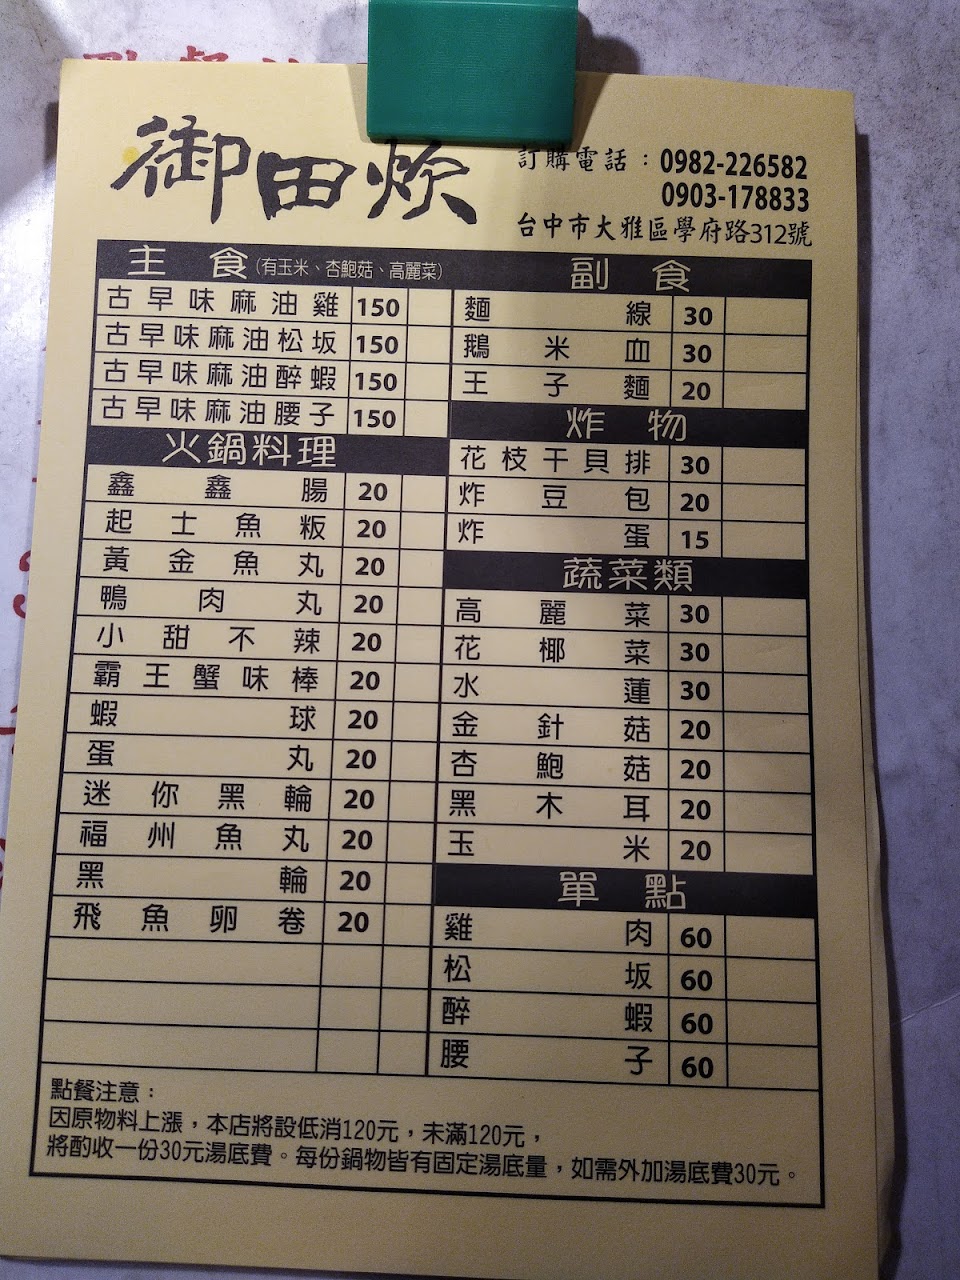 御田炊
訂購電話：0982-226582
0903-178833
台中市大雅區學府路312號
主食(有玉米、杏鮑菇、高麗菜)
古早味麻油雞 150
古早味麻油松坂 150
古早味麻油醉蝦 150
古早味麻油腰子 150
火鍋料理
鑫鑫腸 20
起士魚粄 20
黃金魚丸 20
鴨肉丸 20
小甜不辣 20
霸王蟹味棒 20
蝦球 20
蛋丸 20
迷你黑輪 20
福州魚丸 20
黑輪 20
飛魚卵卷 20
副食
麵線 30
鵝米血 30
王子麵 20
炸物
花枝干貝排 30
炸豆包 20
炸蛋 15
蔬菜類
高麗菜 30
花椰菜 30
水蓮 30
金針菇 20
杏鮑菇 20
黑木耳 20
玉米 20
單點
雞肉 60
松坂 60
醉蝦 60
腰子 60
點餐注意：
因原物料上漲，本店將設低消120元，未滿120元，
將酌收一份30元湯底費。每份鍋物皆有固定湯底量，如需外加湯底費30元。